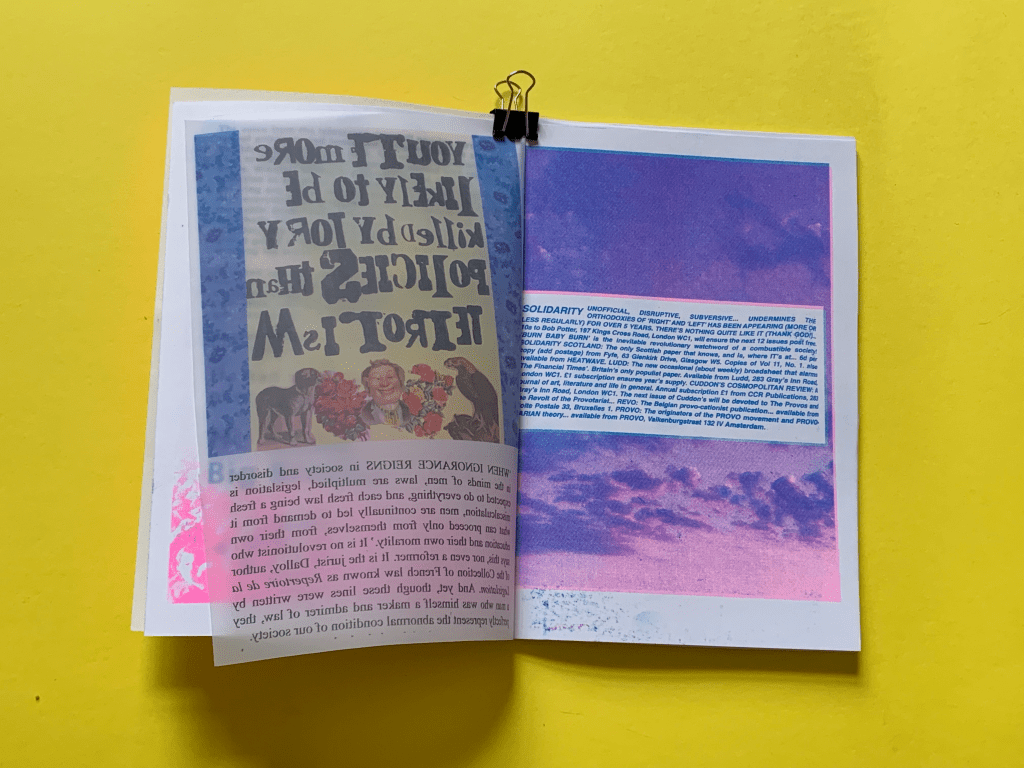 YOU'RE mORe
lIkElY to bE
killed by TORY
POLICIES than
TERRORIsM
8
WHEN IGNORANCE REIGNS in society and disorder
in the minds of men, laws are multiplied, legislation is
expected to do everything, and each fresh law being a fresh
miscalculation, men are continually led to demand from it
what can proceed only from themselves, from their own
education and their own morality.' It is no revolutionist who
says this, nor even a reformer. It is the jurist, Dalloy, author
of the Collection of French law known as Repertoire de la
Legislation. And yet, though these lines were written by
a man who was himself a maker and admirer of law, they
perfectly represent the abnormal condition of our society.
SOLIDARITY UNOFFICIAL, DISRUPTIVE, SUBVERSIVE... UNDERMINES THE
ORTHODOXIES OF 'RIGHT' AND 'LEFT' HAS BEEN APPEARING (MORE OR
LESS REGULARLY) FOR OVER 5 YEARS. THERE'S NOTHING QUITE LIKE IT (THANK GOD!)..
10s to Bob Potter, 197 Kings Cross Road, London WC1, will ensure the next 12 issues post free.
'BURN BABY BURN' is the inevitable revolutionary watchword of a combustible society!
SOLIDARITY SCOTLAND: The only Scottish paper that knows, and is, where IT's at... 6d per
copy (add postage) from Fyfe, 63 Glenkirk Drive, Glasgow W5. Copies of Vol 11, No. 1. Also
available from HEATWAVE. LUDD: The new occasional (about weekly) broadsheet that slams
'The Financial Times'. Britain's only populist paper. Available from Ludd, 283 Gray's Inn Road,
London WC1. £1 subscription ensures year's supply. CUDDON'S COSMOPOLITAN REVIEW: A
journal of art, literature and life in general. Annual subscription £1 from CCR Publications, 283
Gray's Inn Road, London WC1. The next issue of Cuddon's will be devoted to The Provos and
the Revolt of the Provotariat... REVO: The Belgian provo-cationist publication... available from
Boite Postale 33, Bruxelles 1. PROVO: The originators of the PROVO movement and PROVO-
TARIAN theory... available from PROVO, Valkenburgstraat 132 IV Amsterdam.